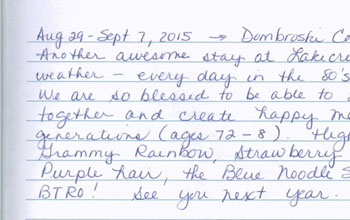 Aug 29 - Sept 7, 2015 → Dombroski Co
Another awesome stay at Lakecre
weather - every day in the 80's
We are so blessed to be able to
together and create happy me
generations (ages 72 - 8). Hig
Grammy Rainbow, Strawberry
Purple hair, the Blue Noodle S
BTRO! See you next year.